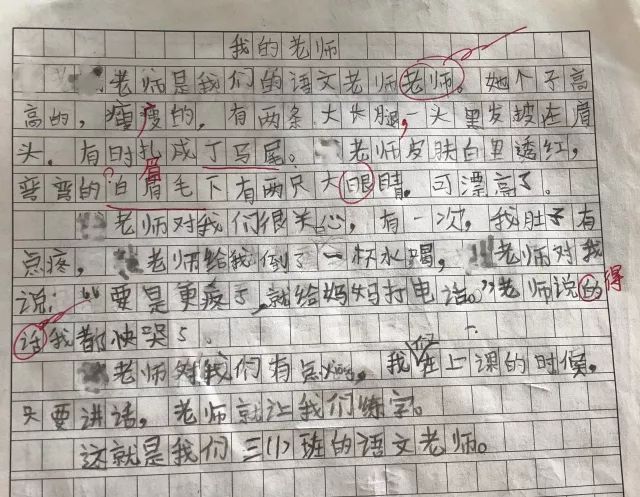 我的老师
老师是我们的语文老师老师。她个子高
高的，瘦瘦的，有两条大长腿，一头黑发披在肩
头，有时扎成了马尾。老师皮肤白里透红，
弯弯的眉毛下有两只大眼睛，可漂亮了。
老师对我们很关心，有一次，我肚子有
点疼，老师给我倒了一杯水喝，老师对我
说：“要是更疼了，就给妈妈打电话。”老师说的得
话我都快哭了。
老师对我们有点凶，我们在上课的时候，
只要讲话，老师就让我们练字。
这就是我们三(1)班的语文老师。